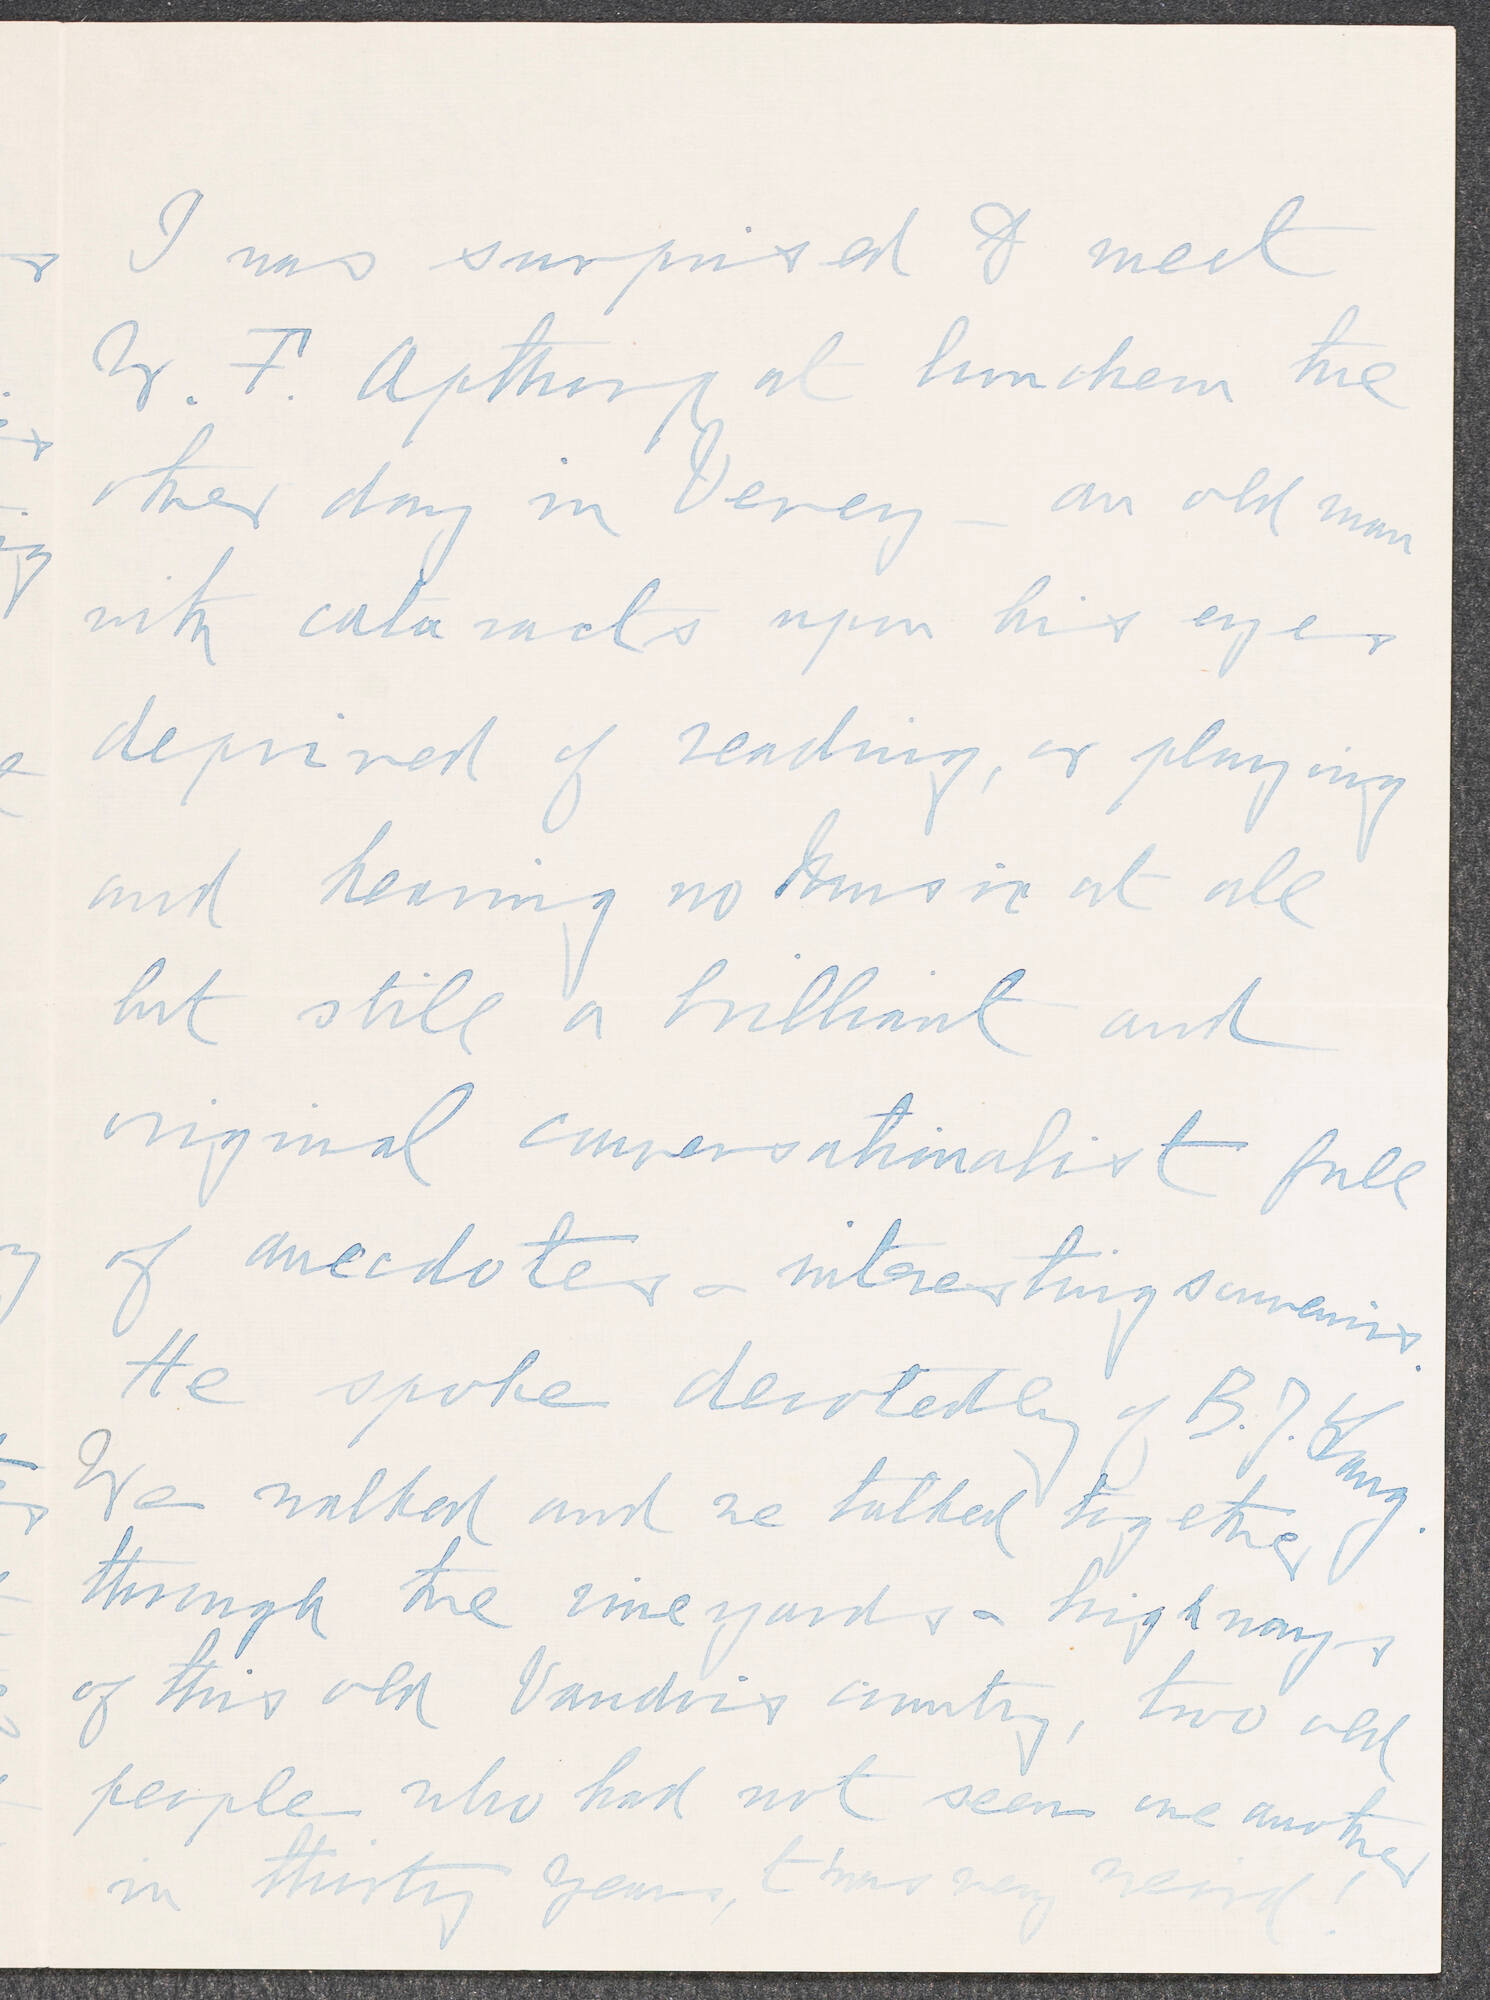 I was surprised to meet
W. F. Apthorp at luncheon the
other day in Vevey – an old man
with cataracts upon his eyes
deprived of reading, or playing
and hearing no music at all
but still a brilliant and
original conversationalist full
of anecdotes & interesting souvenirs.
He spoke devotedly of B. J. Lang.
We walked and we talked together
through the vineyards & highways
of this old Vaudois country, two old
people who had not seen one another
in thirty years, t'was very weird!